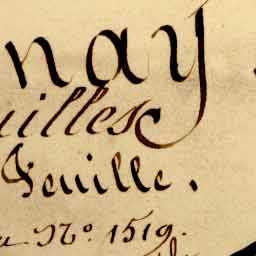 nay.
uilles
Feuille.
Nº. 1519.